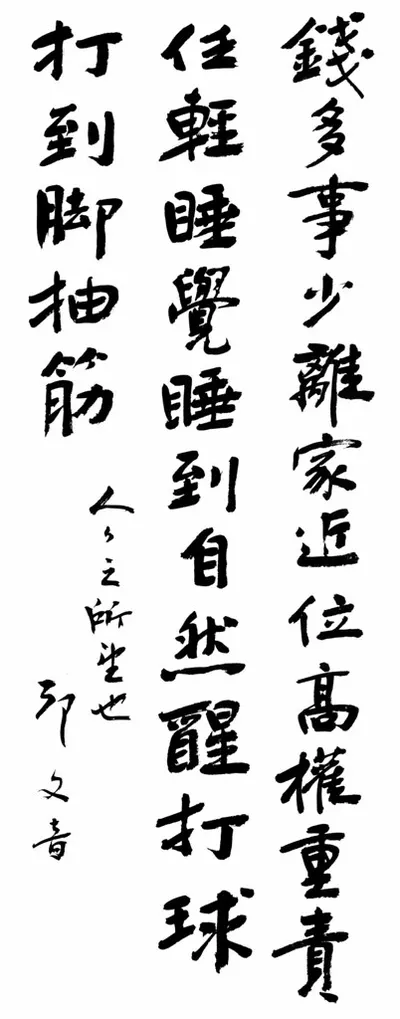 錢多事少離家近位高權重責
任輕睡覺睡到自然醒打球
打到脚抽筋
人々之所望也
邓文音